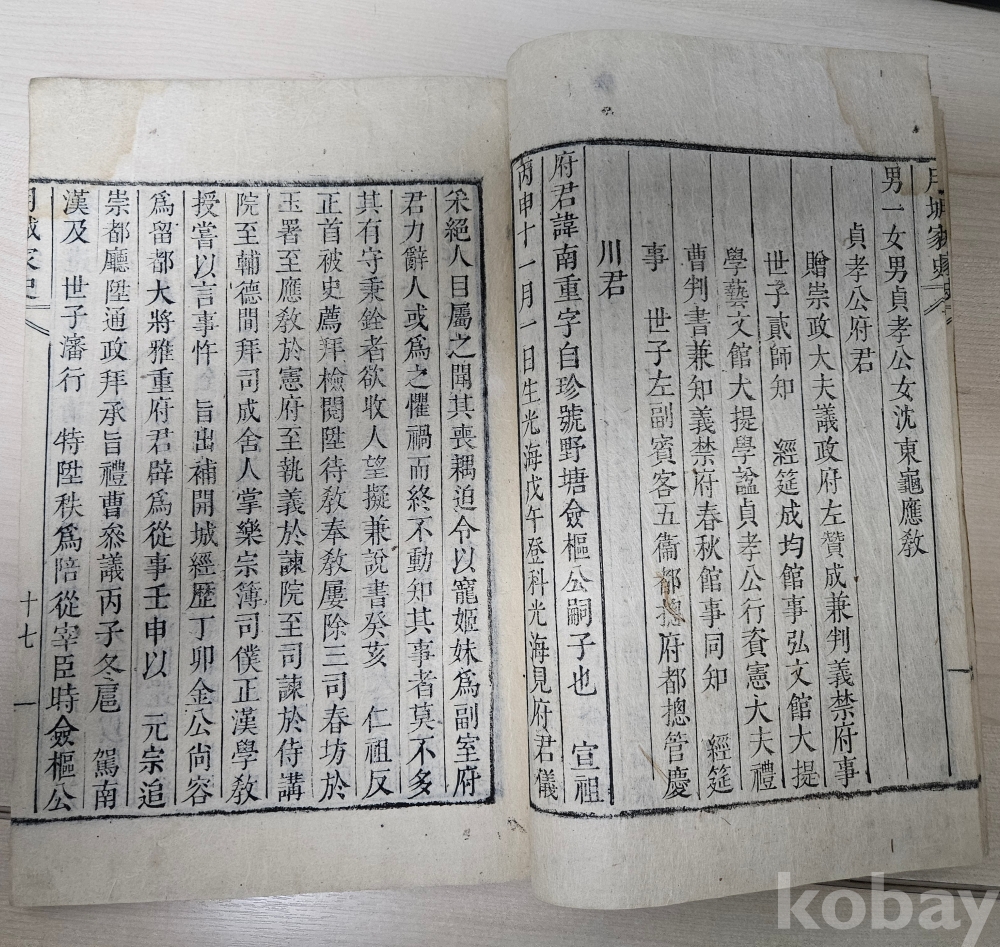 月城家史
男一女男貞孝公女沈東龜應敎
貞孝公府君
贈崇政大夫議政府左贊成兼判義禁府事
世子貳師知 經筵成均館事弘文館大提
學藝文館大提學諡貞孝公行資憲大夫禮
曹判書兼知義禁府春秋館事同知 經筵
事 世子左副賓客五衞都摠府都摠管慶
川君
府君諱南重字自珍號野塘僉樞公嗣子也 宣祖
丙申十一月一日生光海戊午登科光海見府君儀
一
采絕人目屬之聞其喪耦迫令以寵姬妹爲副室府
君力辭人或爲之懼禍而終不動知其事者莫不多
其有守秉銓者欲收人望擬兼說書癸亥 仁祖反
正首被史薦拜檢閱陞待敎奉敎屢除三司春坊於
玉署至應敎於憲府至執義於諫院至司諫於侍講
院至輔德間拜司成舍人掌樂宗簿司僕正漢學敎
授嘗以言事忤 旨出補開城經歷丁卯金公尙容
爲留都大將雅重府君辟爲從事壬申以 元宗追
崇都廳陞通政拜承旨禮曹叅議丙子冬扈 駕南
漢及 世子瀋行 特陞秩爲陪從宰臣時僉樞公
月城家史
十七
一
kobay